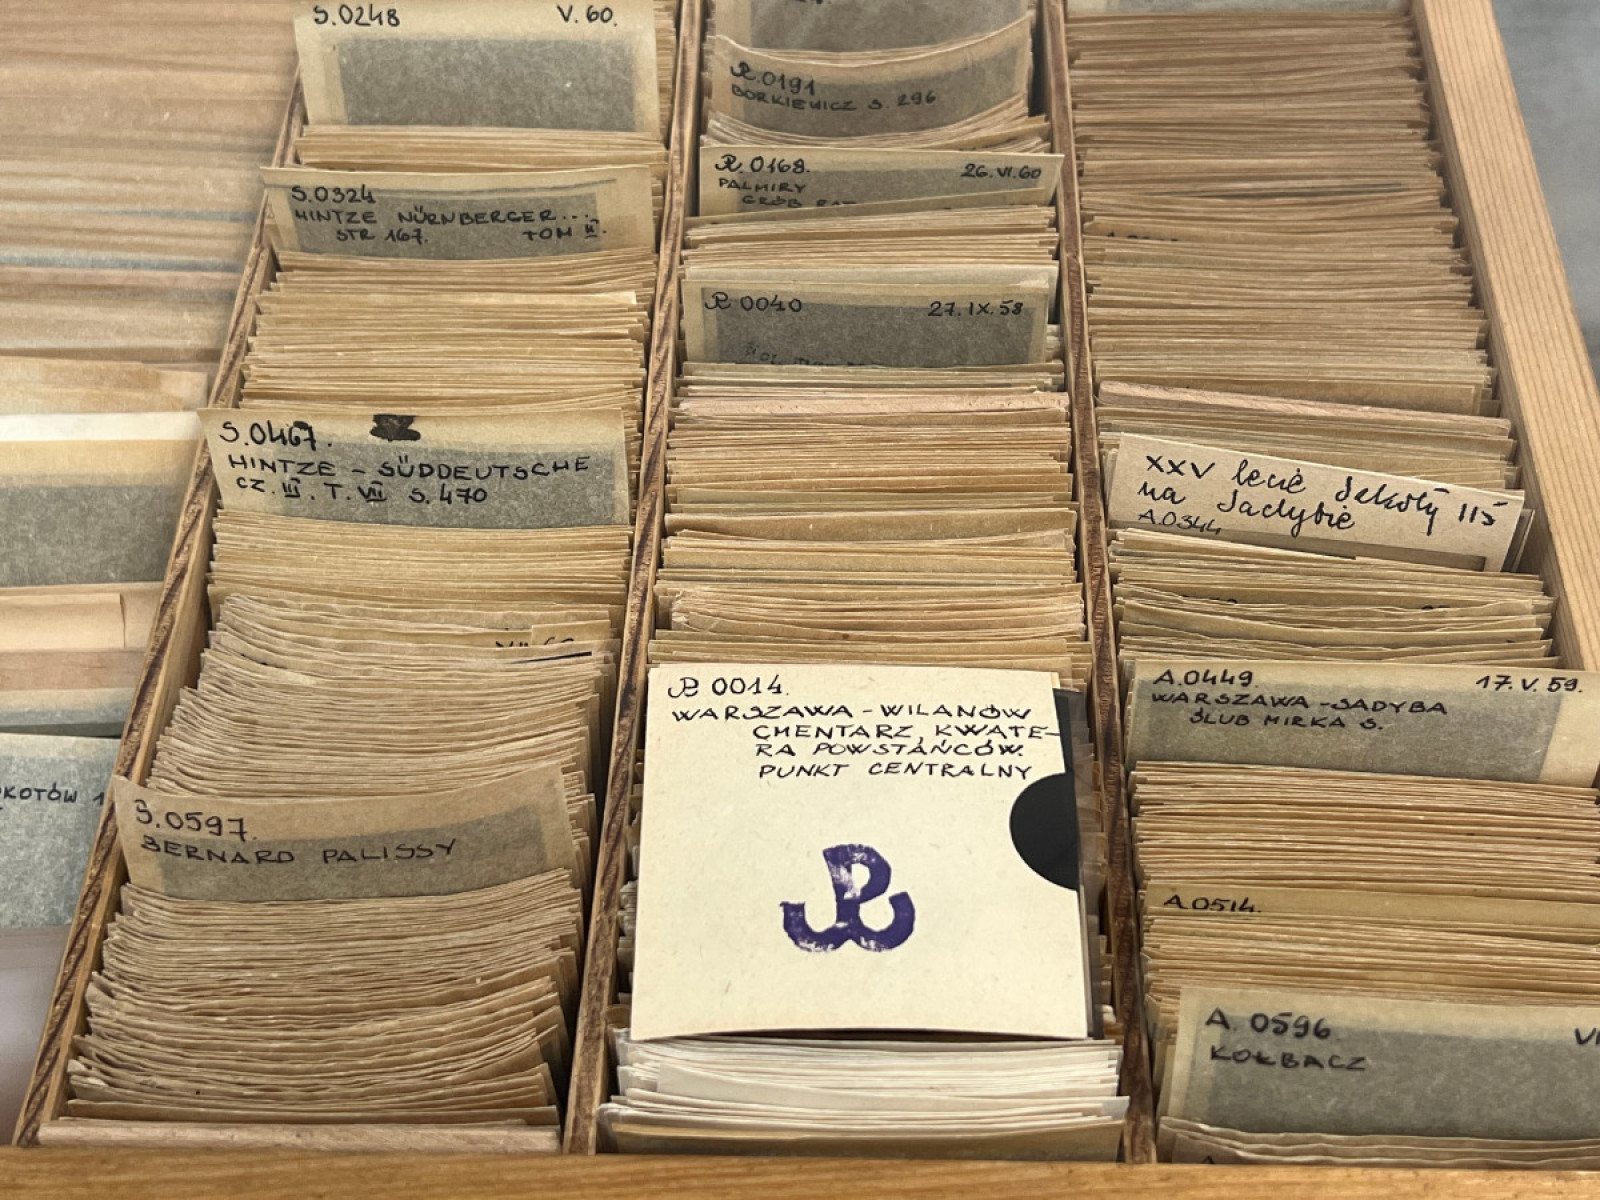 S.0248 V. 60.
S.0324
HINTZE NÜRNBERGER...
STR 167. TOM II.
S.0467.
HINTZE – SÜDDEUTSCHE
CZ. III. T. VII S. 470
S.0597.
BERNARD PALISSY
KOTÓW 1
0191
BORKIEWICZ S. 296
0168. 26.VI.60
PALMIRY
GRÓB
0040 27.IX.58
0014.
WARSZAWA – WILANÓW
CMENTARZ, KWATE-
RA POWSTAŃCÓW.
PUNKT CENTRALNY
XXV lecie Szkoły 115
na Sadybie
A.0344
A.0449. 17.V.59.
WARSZAWA – SADYBA
ŚLUB MIRKA S.
A.0514.
A. 0596 VI
KOŁBACZ